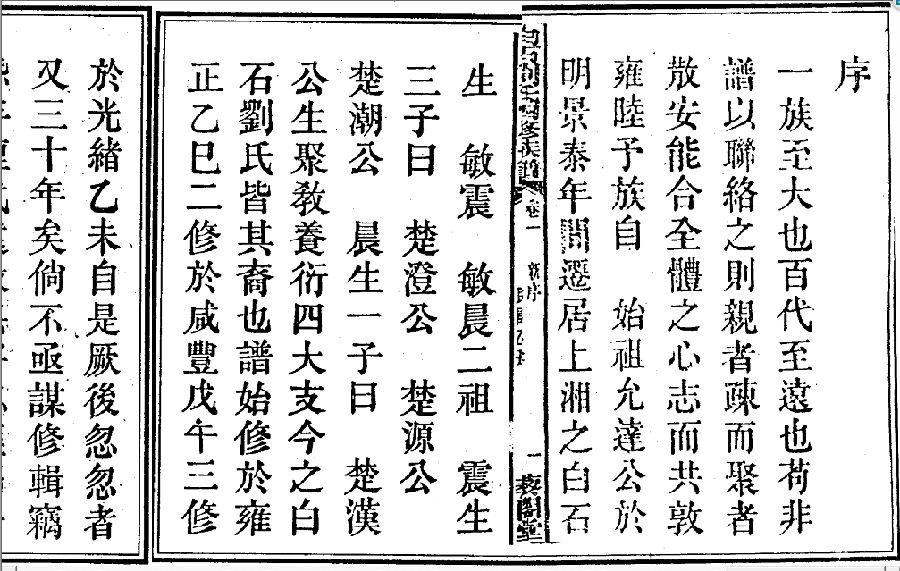 序
一族至大也百代至遠也苟非
譜以聯絡之則親者疎而聚者
散安能合全體之心志而共敦
雍陸予族自 始祖允達公於
明景泰年間遷居上湘之白石
卷一 新序
生 敏震 敏晨二祖 震生
三子曰 楚澄公 楚源公
楚潮公 晨生一子曰 楚漢
公生聚教養衍四大支今之白
石劉氏皆其裔也譜始修於雍
正乙巳二修於咸豐戊午三修
於光緒乙未自是厥後忽忽者
又三十年矣倘不亟謀修輯竊